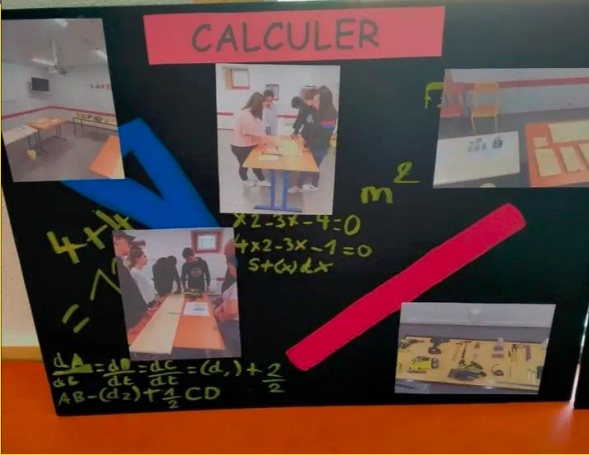 CALCULER
m²
x2-3x-4=0
4x2-3x-1=0
S+(x)dx
4+4
=
dA/dt = dB/dt = dC/dt = (d,) + 2/2
AB-(d2)+1/2 CD